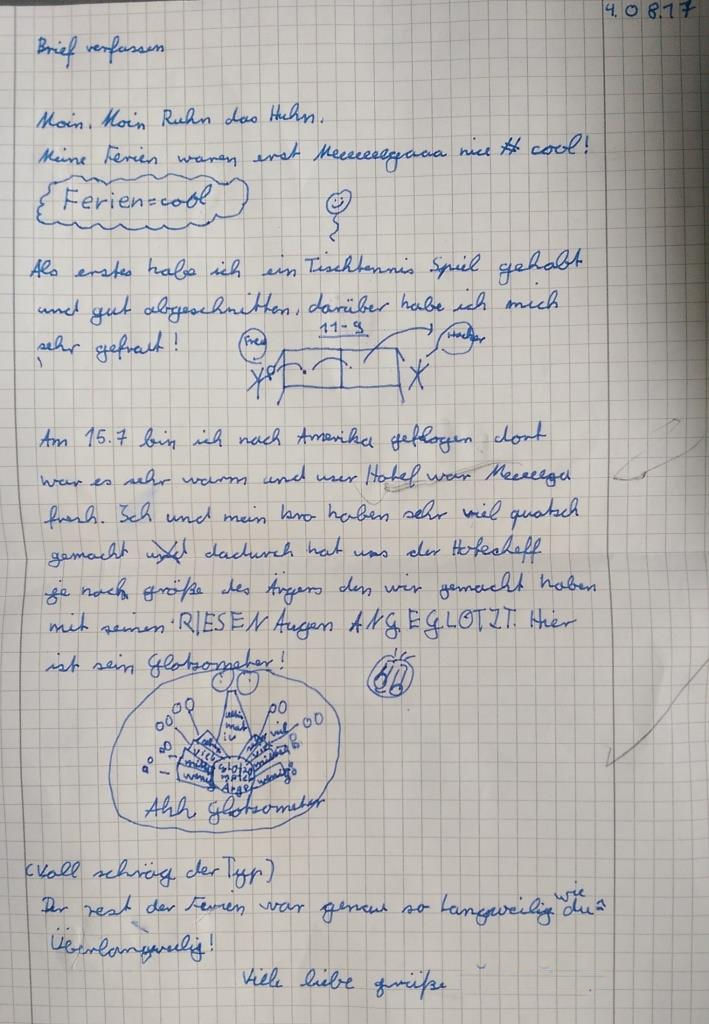 4.08.17
Brief verfassen
Moin, Moin Ruhn das Huhn.
Meine Ferien waren erst Meeeeeegaaa nice # cool!
Ferien=cool
Als erstes habe ich ein Tischtennis Spiel gehabt
und gut abgeschnitten, darüber habe ich mich
sehr gefraut!
11-9
Am 15.7 bin ich nach Amerika geflogen dort
war es sehr warm und user Hotel war Meeeega
fresh. Ich und mein bro haben sehr viel quatsch
gemacht und dadurch hat uns der Hotecheff
je nach größe des Ärgers den wir gemacht haben
mit seinen RIESEN Augen ANGEGLOTZT. Hier
ist sein Glotzometer!
ulti
mat
iv
viel
viel
mittel
wenig
wenig
Ärger
Ahh Glotzometer
(Voll schräg der Typ)
Der rest der Ferien war genau so Langweilig wie du=
Überlangweilig!
Viele liebe grüße